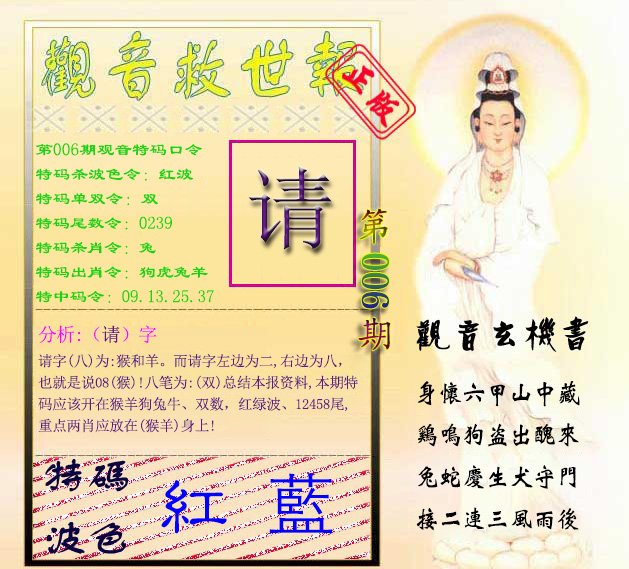 觀音救世報
正版
第006期观音特码口令
特码杀波色令：红波
特码单双令：双
特码尾数令：0239
特码杀肖令：兔
特码出肖令：狗虎兔羊
特中码令：09.13.25.37
请
第006期
分析:（请）字
请字(八)为:猴和羊。而请字左边为二,右边为八，
也就是说08(猴)!八笔为:(双)总结本报资料,本期特
码应该开在猴羊狗兔牛、双数，红绿波、12458尾,
重点两肖应放在(猴羊)身上!
特碼
波色
紅 藍
觀音玄機書
身懷六甲山中藏
鷄鳴狗盗出醜來
兔蛇慶生犬守門
接二連三風雨後